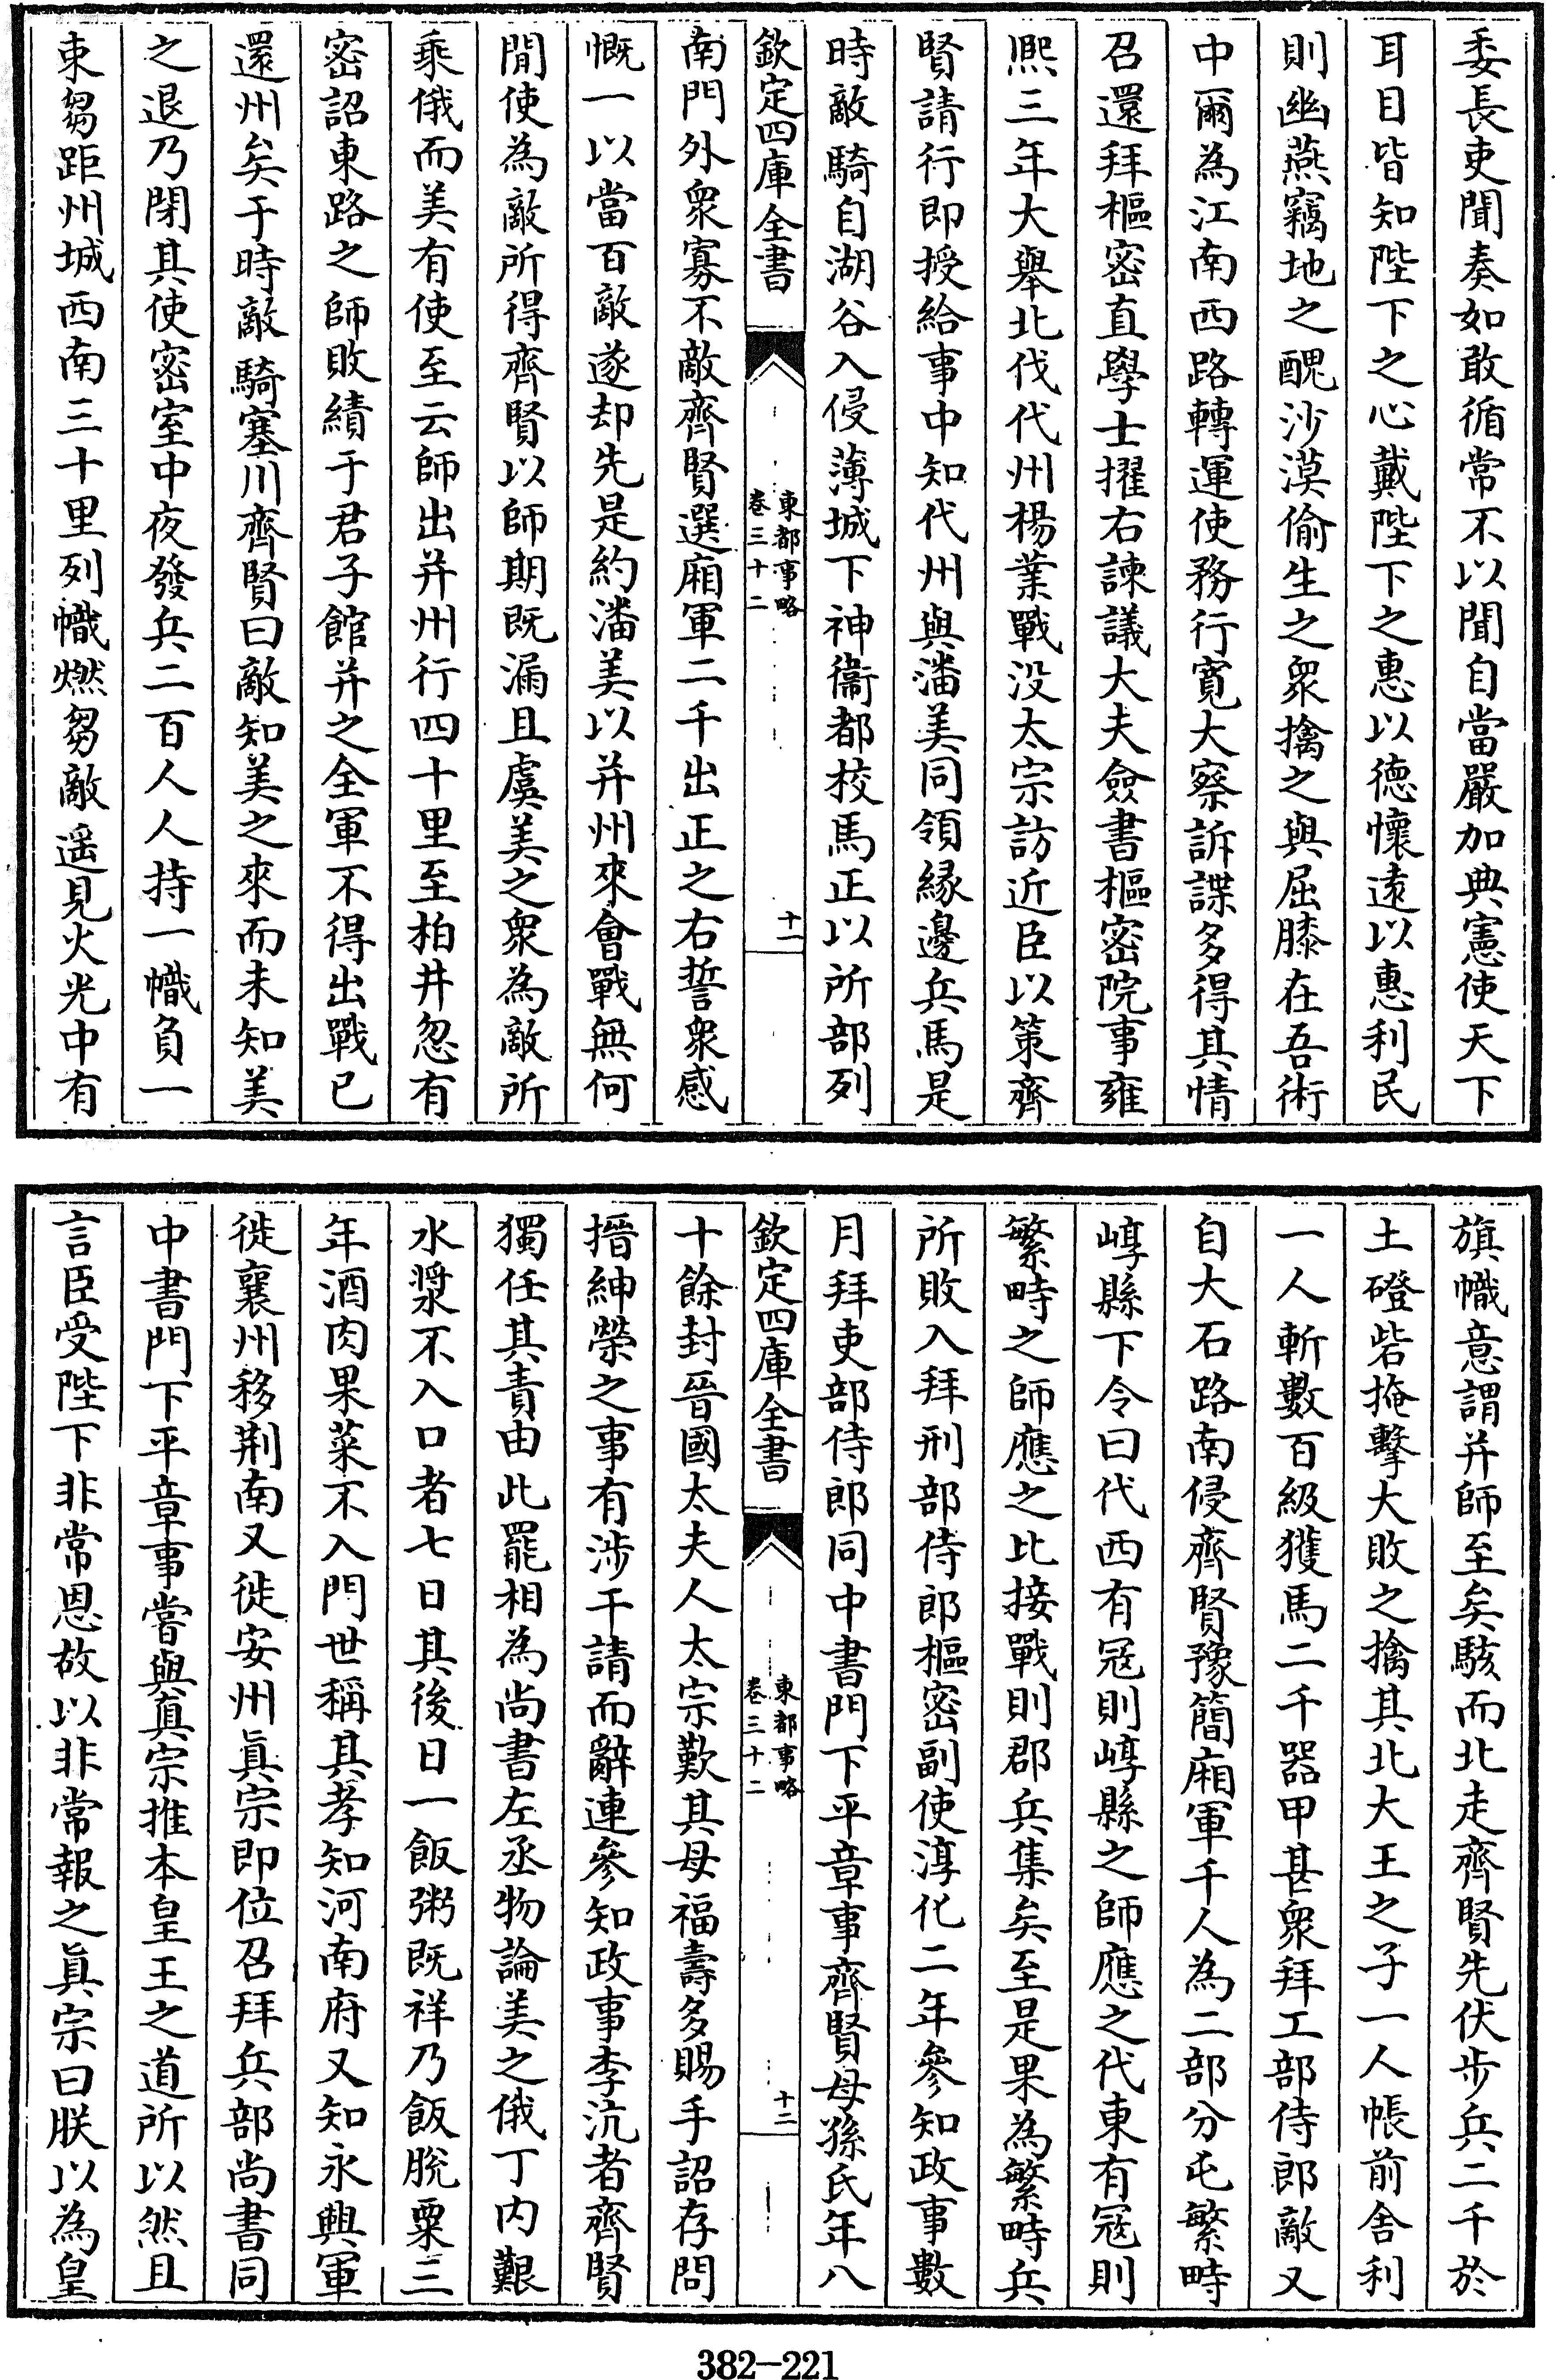 委長吏聞奏如敢循常不以聞自當嚴加典憲使天下
耳目皆知陛下之心戴陛下之惠以德懷逺以惠利民
則幽燕竊地之醜沙漠偷生之衆擒之與屈膝在吾術
中爾為江南西路轉運使務行寛大察訴諜多得其情
召還拜樞密直學士擢右諫議大夫僉書樞密院事雍
熈三年大舉北伐代州楊業戰没太宗訪近臣以策齊
賢請行即授給事中知代州與潘美同領緣邊兵馬是
時敵騎自湖谷入侵薄城下神衞都校馬正以所部列
欽定四庫全書
東都事略
卷三十二
十一
南門外衆寡不敵齊賢選廂軍二千出正之右誓衆感
慨一以當百敵遂却先是約潘美以并州來會戰無何
間使為敵所得齊賢以師期既漏且虞美之衆為敵所
乘俄而美有使至云師出并州行四十里至柏井忽有
密詔東路之師敗績于君子館并之全軍不得出戰已
還州矣于時敵騎塞川齊賢曰敵知美之來而未知美
之退乃閉其使密室中夜發兵二百人人持一幟負一
束芻距州城西南三十里列幟燃芻敵遥見火光中有
旗幟意謂并師至矣駭而北走齊賢先伏步兵二千於
土磴砦掩擊大敗之擒其北大王之子一人帳前舎利
一人斬數百級獲馬二千器甲甚衆拜工部侍郎敵又
自大石路南侵齊賢豫簡廂軍千人為二部分屯繁畤
崞縣下令曰代西有冦則崞縣之師應之代東有冦則
繁畤之師應之比接戰則郡兵集矣至是果為繁畤兵
所敗入拜刑部侍郎樞密副使淳化二年參知政事數
月拜吏部侍郎同中書門下平章事齊賢母孫氏年八
欽定四庫全書
東都事略
卷三十二
十二
十餘封晉國太夫人太宗歎其母福壽多賜手詔存問
搢紳榮之事有涉干請而辭連參知政事李沆者齊賢
獨任其責由此罷相為尚書左丞物論美之俄丁内艱
水漿不入口者七日其後日一飯粥既祥乃飯脫粟三
年酒肉果菜不入門世稱其孝知河南府又知永興軍
徙襄州移荆南又徙安州眞宗即位召拜兵部尚書同
中書門下平章事嘗與眞宗推本皇王之道所以然且
言臣受陛下非常恩故以非常報之眞宗曰朕以為皇
382-221